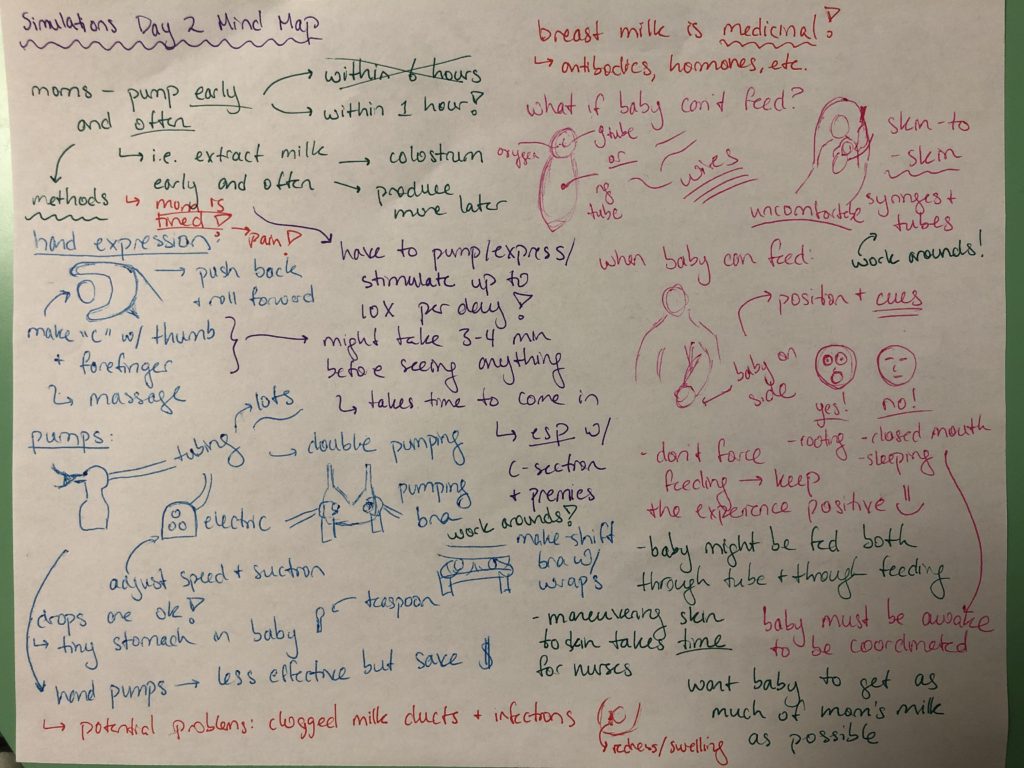 Simulations Day 2 Mind Map
moms - pump early
and often
within 6 hours
within 1 hour!
↳ i.e. extract milk
early and often
→ colostrum
→ produce
more later
methods
↳ mom is
tired!
→ pain!
hand expression:
→ push back
+ roll forward
make "C" w/ thumb
+ forefinger
↳ massage
have to pump/express/
stimulate up to
10x per day!
might take 3-4 min
before seeing anything
↳ takes time to come in
↳ esp w/
C-section
+ premies
pumps:
tubing
lots
electric
adjust speed + suction
→ double pumping
pumping
bra
work arounds!
make-shift
bra w/
wraps
drops are ok!
↳ tiny stomach in baby
teaspoon
hand pumps → less effective but save $
↳ potential problems: clogged milk ducts + infections
redness/swelling
breast milk is medicinal!
↳ antibodies, hormones, etc.
what if baby can't feed?
oxygen
gtube
or
ng
tube
wires
skin-to
-skin
uncomfortable
syringes +
tubes
work arounds!
when baby can feed:
position + cues
baby on
side
yes!
no!
- rooting
- closed mouth
- sleeping
- don't force
feeding → keep
the experience positive
- baby might be fed both
through tube + through feeding
- maneuvering skin
to skin takes time
for nurses
baby must be awake
to be coordinated
want baby to get as
much of mom's milk
as possible